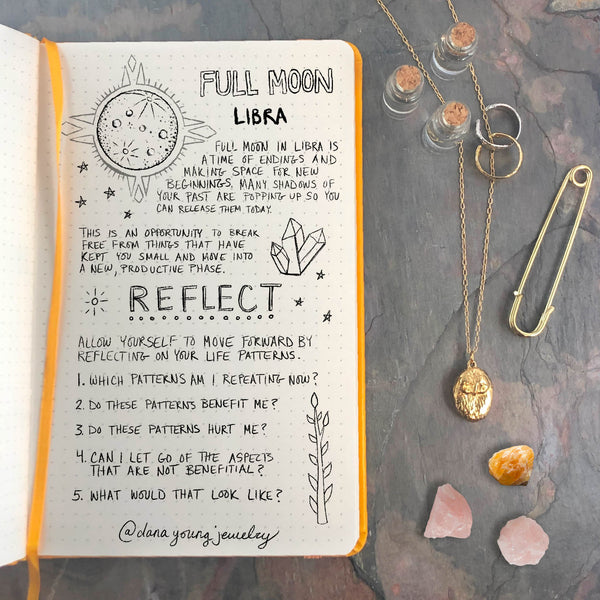 FULL MOON
LIBRA
FULL MOON IN LIBRA IS
A TIME OF ENDINGS AND
MAKING SPACE FOR NEW
BEGINNINGS. MANY SHADOWS OF
YOUR PAST ARE POPPING UP SO YOU
CAN RELEASE THEM TODAY.
THIS IS AN OPPORTUNITY TO BREAK
FREE FROM THINGS THAT HAVE
KEPT YOU SMALL AND MOVE INTO
A NEW, PRODUCTIVE PHASE.
REFLECT
ALLOW YOURSELF TO MOVE FORWARD BY
REFLECTING ON YOUR LIFE PATTERNS.
1. WHICH PATTERNS AM I REPEATING NOW?
2. DO THESE PATTERNS BENEFIT ME?
3. DO THESE PATTERNS HURT ME?
4. CAN I LET GO OF THE ASPECTS
THAT ARE NOT BENEFITIAL?
5. WHAT WOULD THAT LOOK LIKE?
@danayoungjewelry